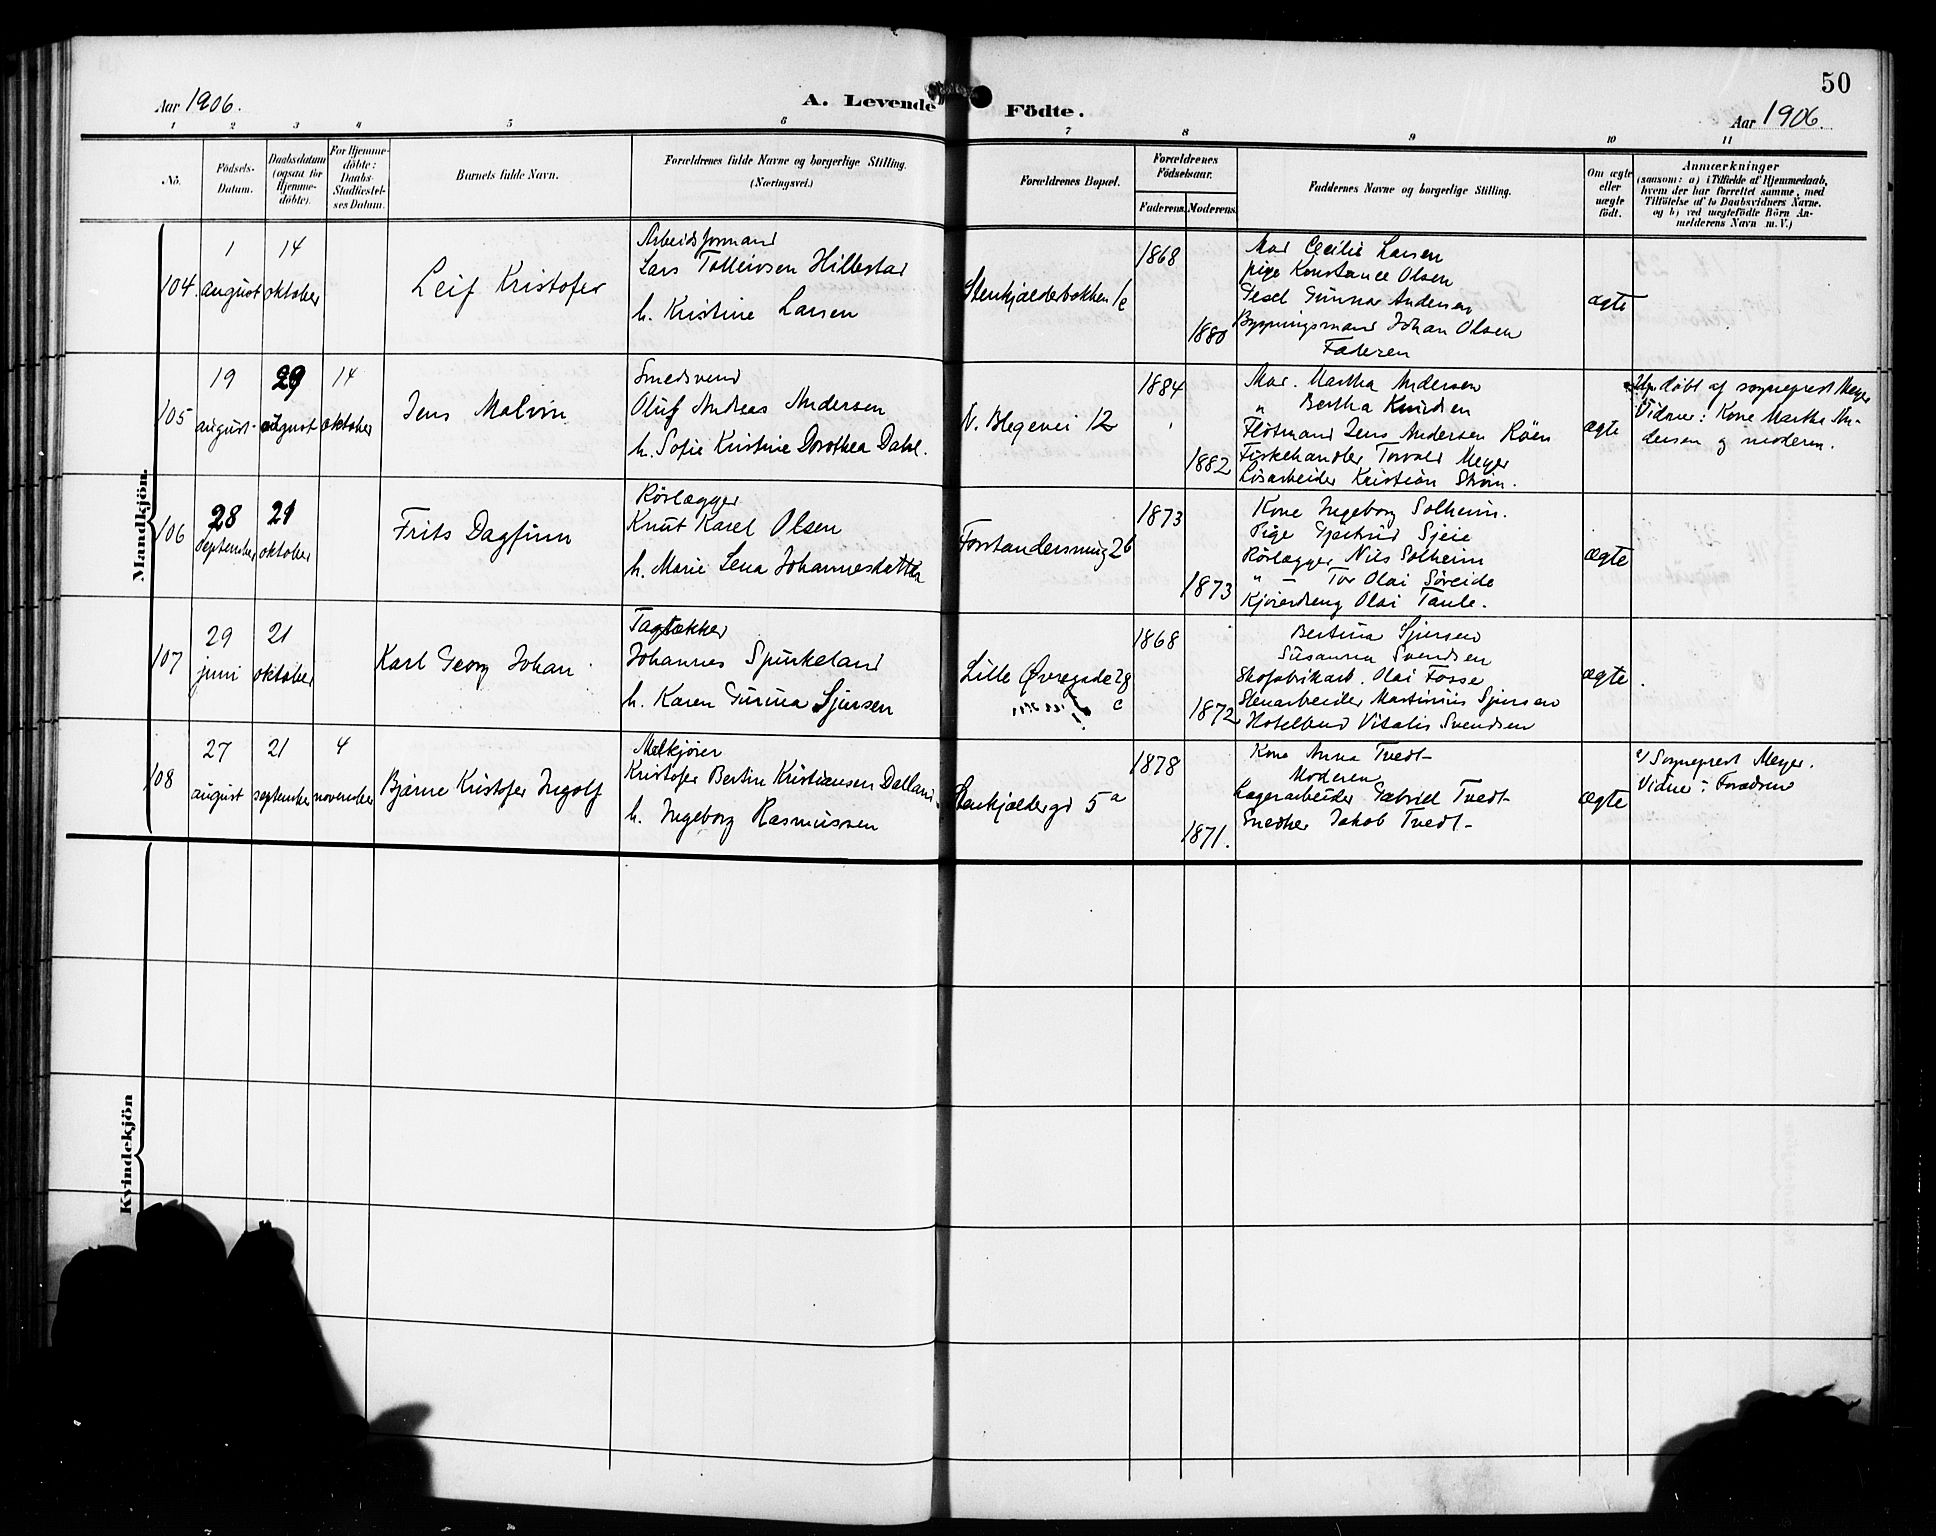 50
Aar 1906.
A. Levende Födte.
Aar 1906.
1 2 3 4 5 6 7 8 9 10 11
No.
Födsels-Datum.
Daabsdatum (ogsaa for Hjemme-döbte).
For Hjemme-döbte: Daabs-Stadfæstel-ses Datum.
Barnets fulde Navn.
Forældrenes fulde Navne og borgerlige Stilling.
(Næringsvei.)
Forældrenes Bopæl.
Forældrenes Födselsaar.
Faderens. Moderens.
Faddernes Navne og borgerlige Stilling.
Om ægte eller uægte födt.
Anmærkninger
(saasom: a) i Tilfælde af Hjemmedaab,
hvem der har forrettet samme, med
Tilföielse af to Daabsvidners Navne.
og b) ved uægtefödte Börn An-
melderens Navn m. V.)
Mandkjön.
104.
1 august
14 oktober
Leif Kristofer
Arbeidsformand
Lars Tolleivsen Hillestad
h. Kristine Larsen
Stenkjælderbakken 1c
1868
1880
Mad Cecilie Larsen
pige Konstance Olsen
Gesel Gunnar Andersen
Bygningsmand Johan Olsen
Faderen
ægte
105
19 august
29 august
14 oktober
Jens Malvin
Smedsvend
Oluf Andreas Andersen
h. Sofie Kristine Dorothea Dahl.
N. Blegevei 12
1884
1882
Mad. Martha Andersen
" Bertha Knudsen
Flötmand Jens Andersen Röen
Fiskehandler Torvald Meyer
Lösarbeider Kristian
ægte
döbt af sogneprest Meyer
Vidner: Kone Martha An-
dersen og moderen.
106
28 september
21 oktober
Frits Dagfinn
Rörlægger
Knut Karel Olsen
h. Marie Lena Johannesdatter
Forstandersmug 2b
1873
1873
Kone Ingeborg Solheim.
Pige Gjertrud Sjeie
Rörlægger Nils Solheim
" – Tor Olai Söreide
Kjöredreng Olai Taule.
ægte
107
29 juni
21 oktober
Karl Georg Johan
Tagtækker
Johannes Spurkeland
h. Karen Gurina Sjursen
Lille Øvregade 28 c
1868
1872
Bertina Sjursen
Susanna Svendsen
Skofabrikarb. Olai Fosse
Stenarbeider Martinius Sjursen
Hotelbud Vitalis Svendsen
ægte.
108
27 august
21 september
4 november
Bjarne Kristofer Ingolf
Melkjörer
Kristofer Bertin Kristiansen Dalland
h. Ingeborg Rasmussen
Stenkjælderg 5a
1878
1871.
Kone Anna Tvedt
Moderen
Lagerarbeider Gabriel Tvedt
Snedker Jakob Tvedt
ægte
a) Sogneprest Meyer.
Vidner: Forældrene
Kvindekjön